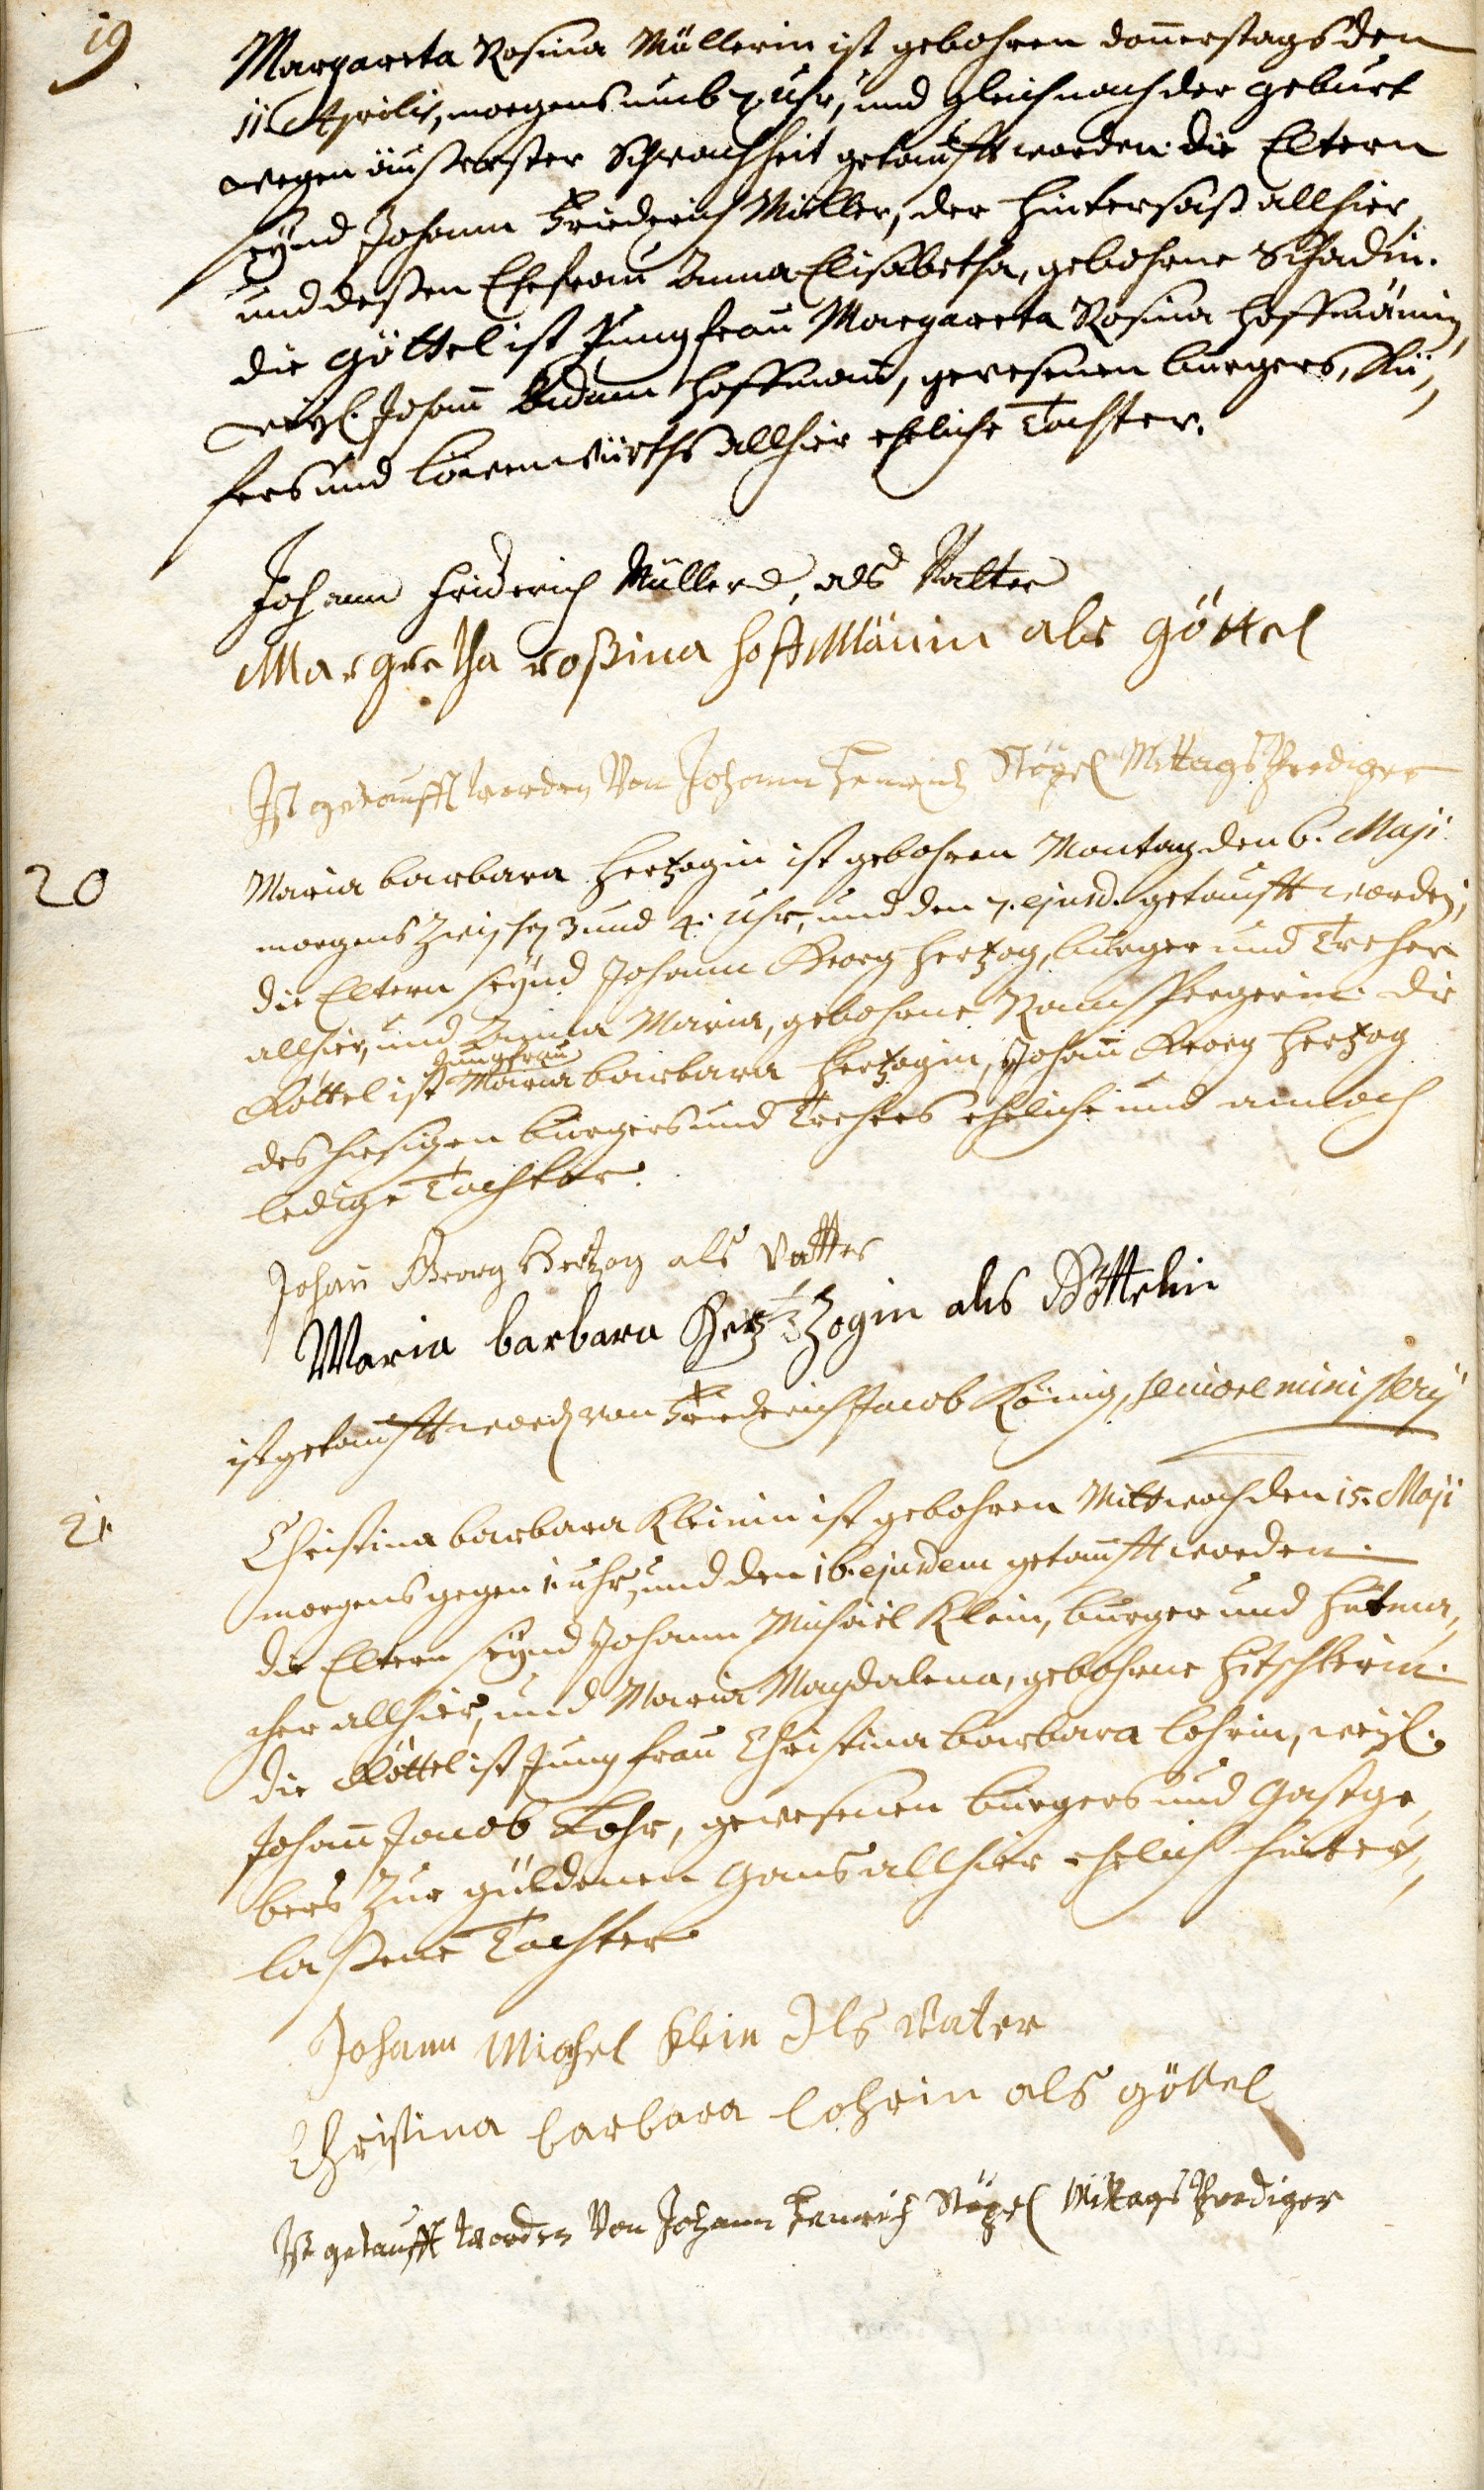 19. Margareta Rosina Müllerin ist gebohren donnerstags den
11. Aprilis, morgens umb 7. Uhr, und gleich nach der geburt
wegen äußerster Schwachheit getaufft worden. die Eltern
seynd Johann Friederich Müller, der hintersaß allhier,
und deßen Ehefrau Anna Elisabetha, gebohrne Schadin.
die Göttel ist Jungfrau Margareta Rosina Hoffmännin,
weyl. Johann Adam Hoffmann, gewesenen burgers, Kü-
fers und Löwenwürths allhier eheliche Tochter.
Johann Friderich Müller, als Vatter
Margretha roßina hoffMänin als göttel
Ist getaufft worden Von Johann Henrich Stögel MittagsPrediger
20 Maria barbara Hertzogin ist gebohren Montag den 6. Maji
morgens zwischen 3 und 4. Uhr, und den 7. ejusd. getaufft worden;
die Eltern seynd Johann Georg Hertzog, burger und Treher
allhier, und Anna Maria, gebohrne Ramspergerin. die
Göttel ist Jungfrau Maria barbara Hertzogin, Johann Georg Hertzog
des hiesigen burgers und Trehers eheliche und annoch
ledige Tochter.
Johan Georg Hertzog als Vatter
Maria barbara Hertzogin als Göttelin
ist getaufft word. von Friederich Jacob König, seniore ministerij
21. Christina barbara Kleinin ist gebohren Mittwoch den 15. Maji
morgens gegen 1. uhr, und den 16. ejusdem getaufft worden.
die Eltern seynd Johann Michaël Klein, burger und hutma-
cher allhier, und Maria Magdalena, gebohrne Hitschlerin.
die Göttel ist Jungfrau Christina barbara Lohrin, weyl.
Johann Jacob Lohr, gewesenen burgers und Gastge-
bers zur güldenen Gans allhier ehelich hinter-
laßene Tochter
Johann Michel Klein Als Vater
Christina barbara Lohrin als göttel
Ist getaufft worden Von Johann Henrich Stögel Mittags Prediger